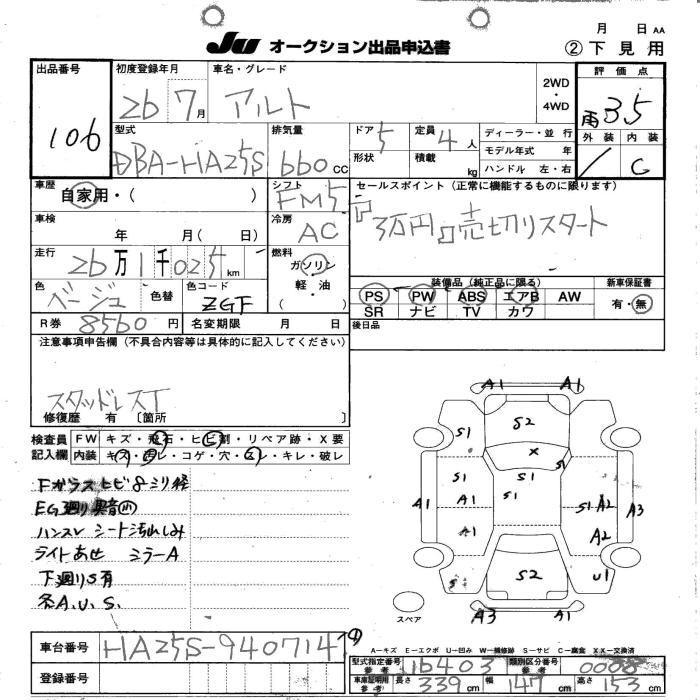 月 日 AA
JU オークション出品申込書
② 下見用
出品番号 106
初度登録年月 26 7月
車名・グレード アルト
2WD・4WD
評価点 雨 3.5
型式 DBA-HA25S
排気量 660 CC
ドア 5
定員 4人
形状
積載 kg
ディーラー・並行
モデル年式 年
ハンドル 左・右
外装 内装 C
車歴 自家用・( )
シフト FM5
セールスポイント(正常に機能するものに限ります)
3万円 売切りスタート
車検 年 月( 日)
冷房 AC
走行 26万1千025km
燃料 ガソリン・軽油・( )
色 ベージュ 色替
色コード ZGF
装備品(純正品に限る)
PS PW ABS エアB AW
SR ナビ TV カワ
新車保証書 有・無
R券 8560円
名変期限 月 日
後日品
注意事項申告欄(不具合内容等は具体的に記入してください)
スタッドレスT
修復歴 有 〔箇所 〕
検査員記入欄
FW キズ・飛石・ヒビ割・リペア跡・X要
内装 キズ・汚レ・コゲ・穴・スレ・キレ・破レ
Fガラスヒビ8ミリ径
EG廻り異音小
ハンスレ シート汚れしみ
ライトあせ ミラーA
下廻りS有
各A.U.S.
A1 A1
S1 S2
X
S1 S1 S1
A1 A1 S1 A2 A3
A1 A2
S S2 U1
スペア A3 A1
車台番号 HA25S-940714
④
登録番号
A=キズ E=エクボ U=凹み W=補修跡 S=サビ C=腐食 XX=交換済
型式指定番号 参考 16403
類別区分番号 参考 0008
車庫証明用 参考 長さ 339cm 幅 147cm 高さ 153cm